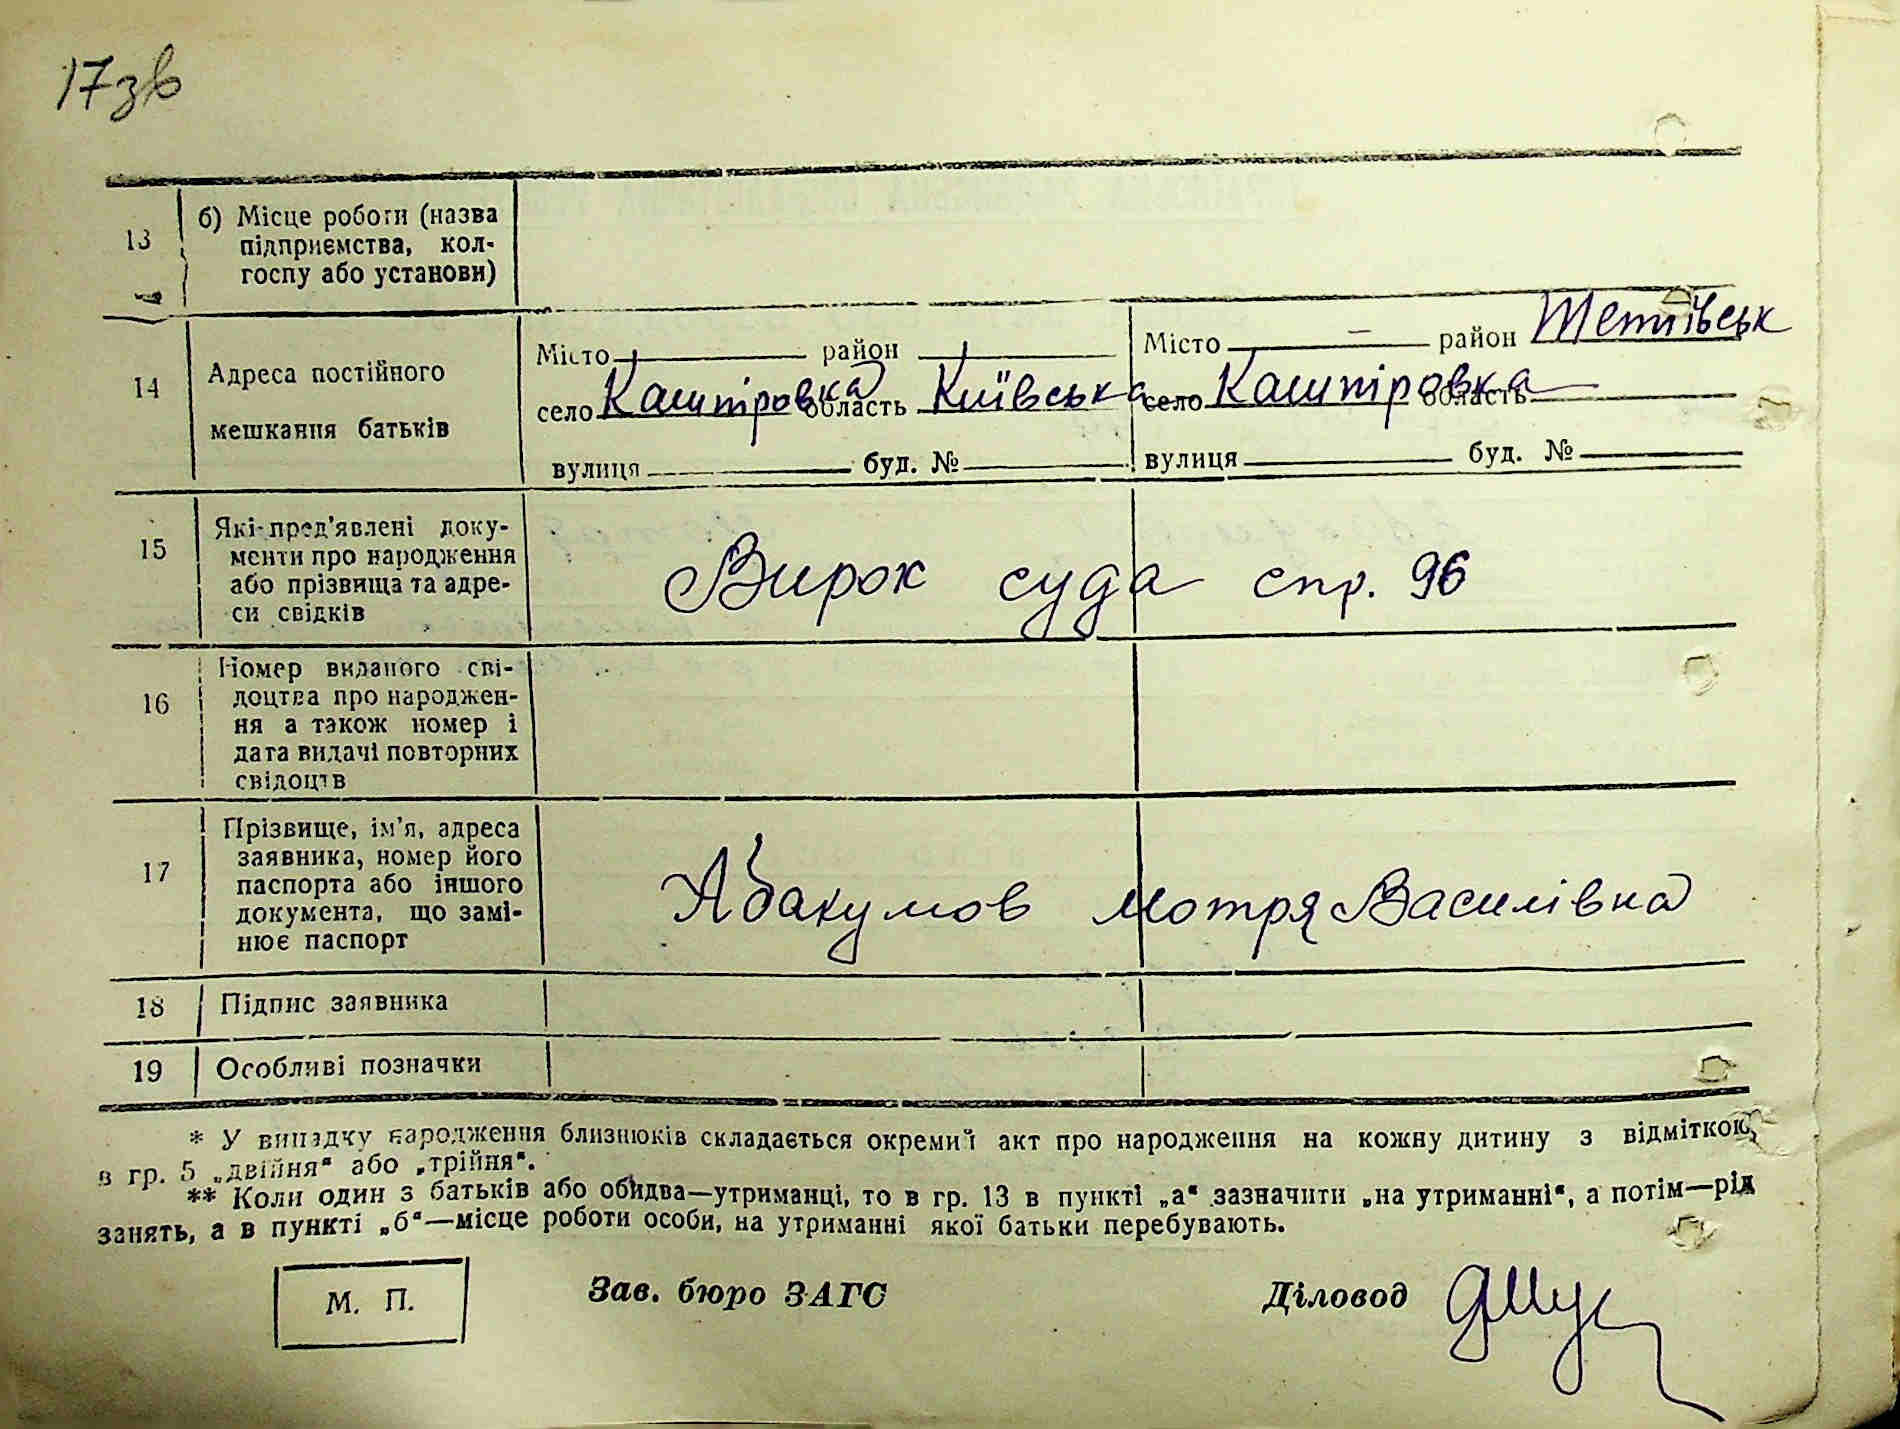 17зв
13
б) Місце роботи (назва
підприємства, кол-
госпу або установи)
14
Адреса постійного
мешкання батьків
Місто район
село Кашпіровка область Київська
вулиця буд. №
Місто – район Тетіївськ
село Кашпіровка область
вулиця буд. №
15
Які пред'явлені доку-
менти про народження
або прізвища та адре-
си свідків
Вирок суда спр. 96
16
Номер виданого сві-
доцтва про народжен-
ня а також номер і
дата видачі повторних
свідоцтв
17
Прізвище, ім'я, адреса
заявника, номер його
паспорта або іншого
документа, що замі-
нює паспорт
Абакумов Мотря Василівна
18
Підпис заявника
19
Особливі позначки
* У випадку народження близнюків складається окремий акт про народження на кожну дитину з відміткою,
в гр. 5 „двійня“ або „трійня“.
** Коли один з батьків або обидва—утриманці, то в гр. 13 в пункті „а“ зазначити „на утриманні“, а потім—рід
занять, а в пункті „б“—місце роботи особи, на утриманні якої батьки перебувають.
М. П.
Зав. бюро ЗАГС
Діловод